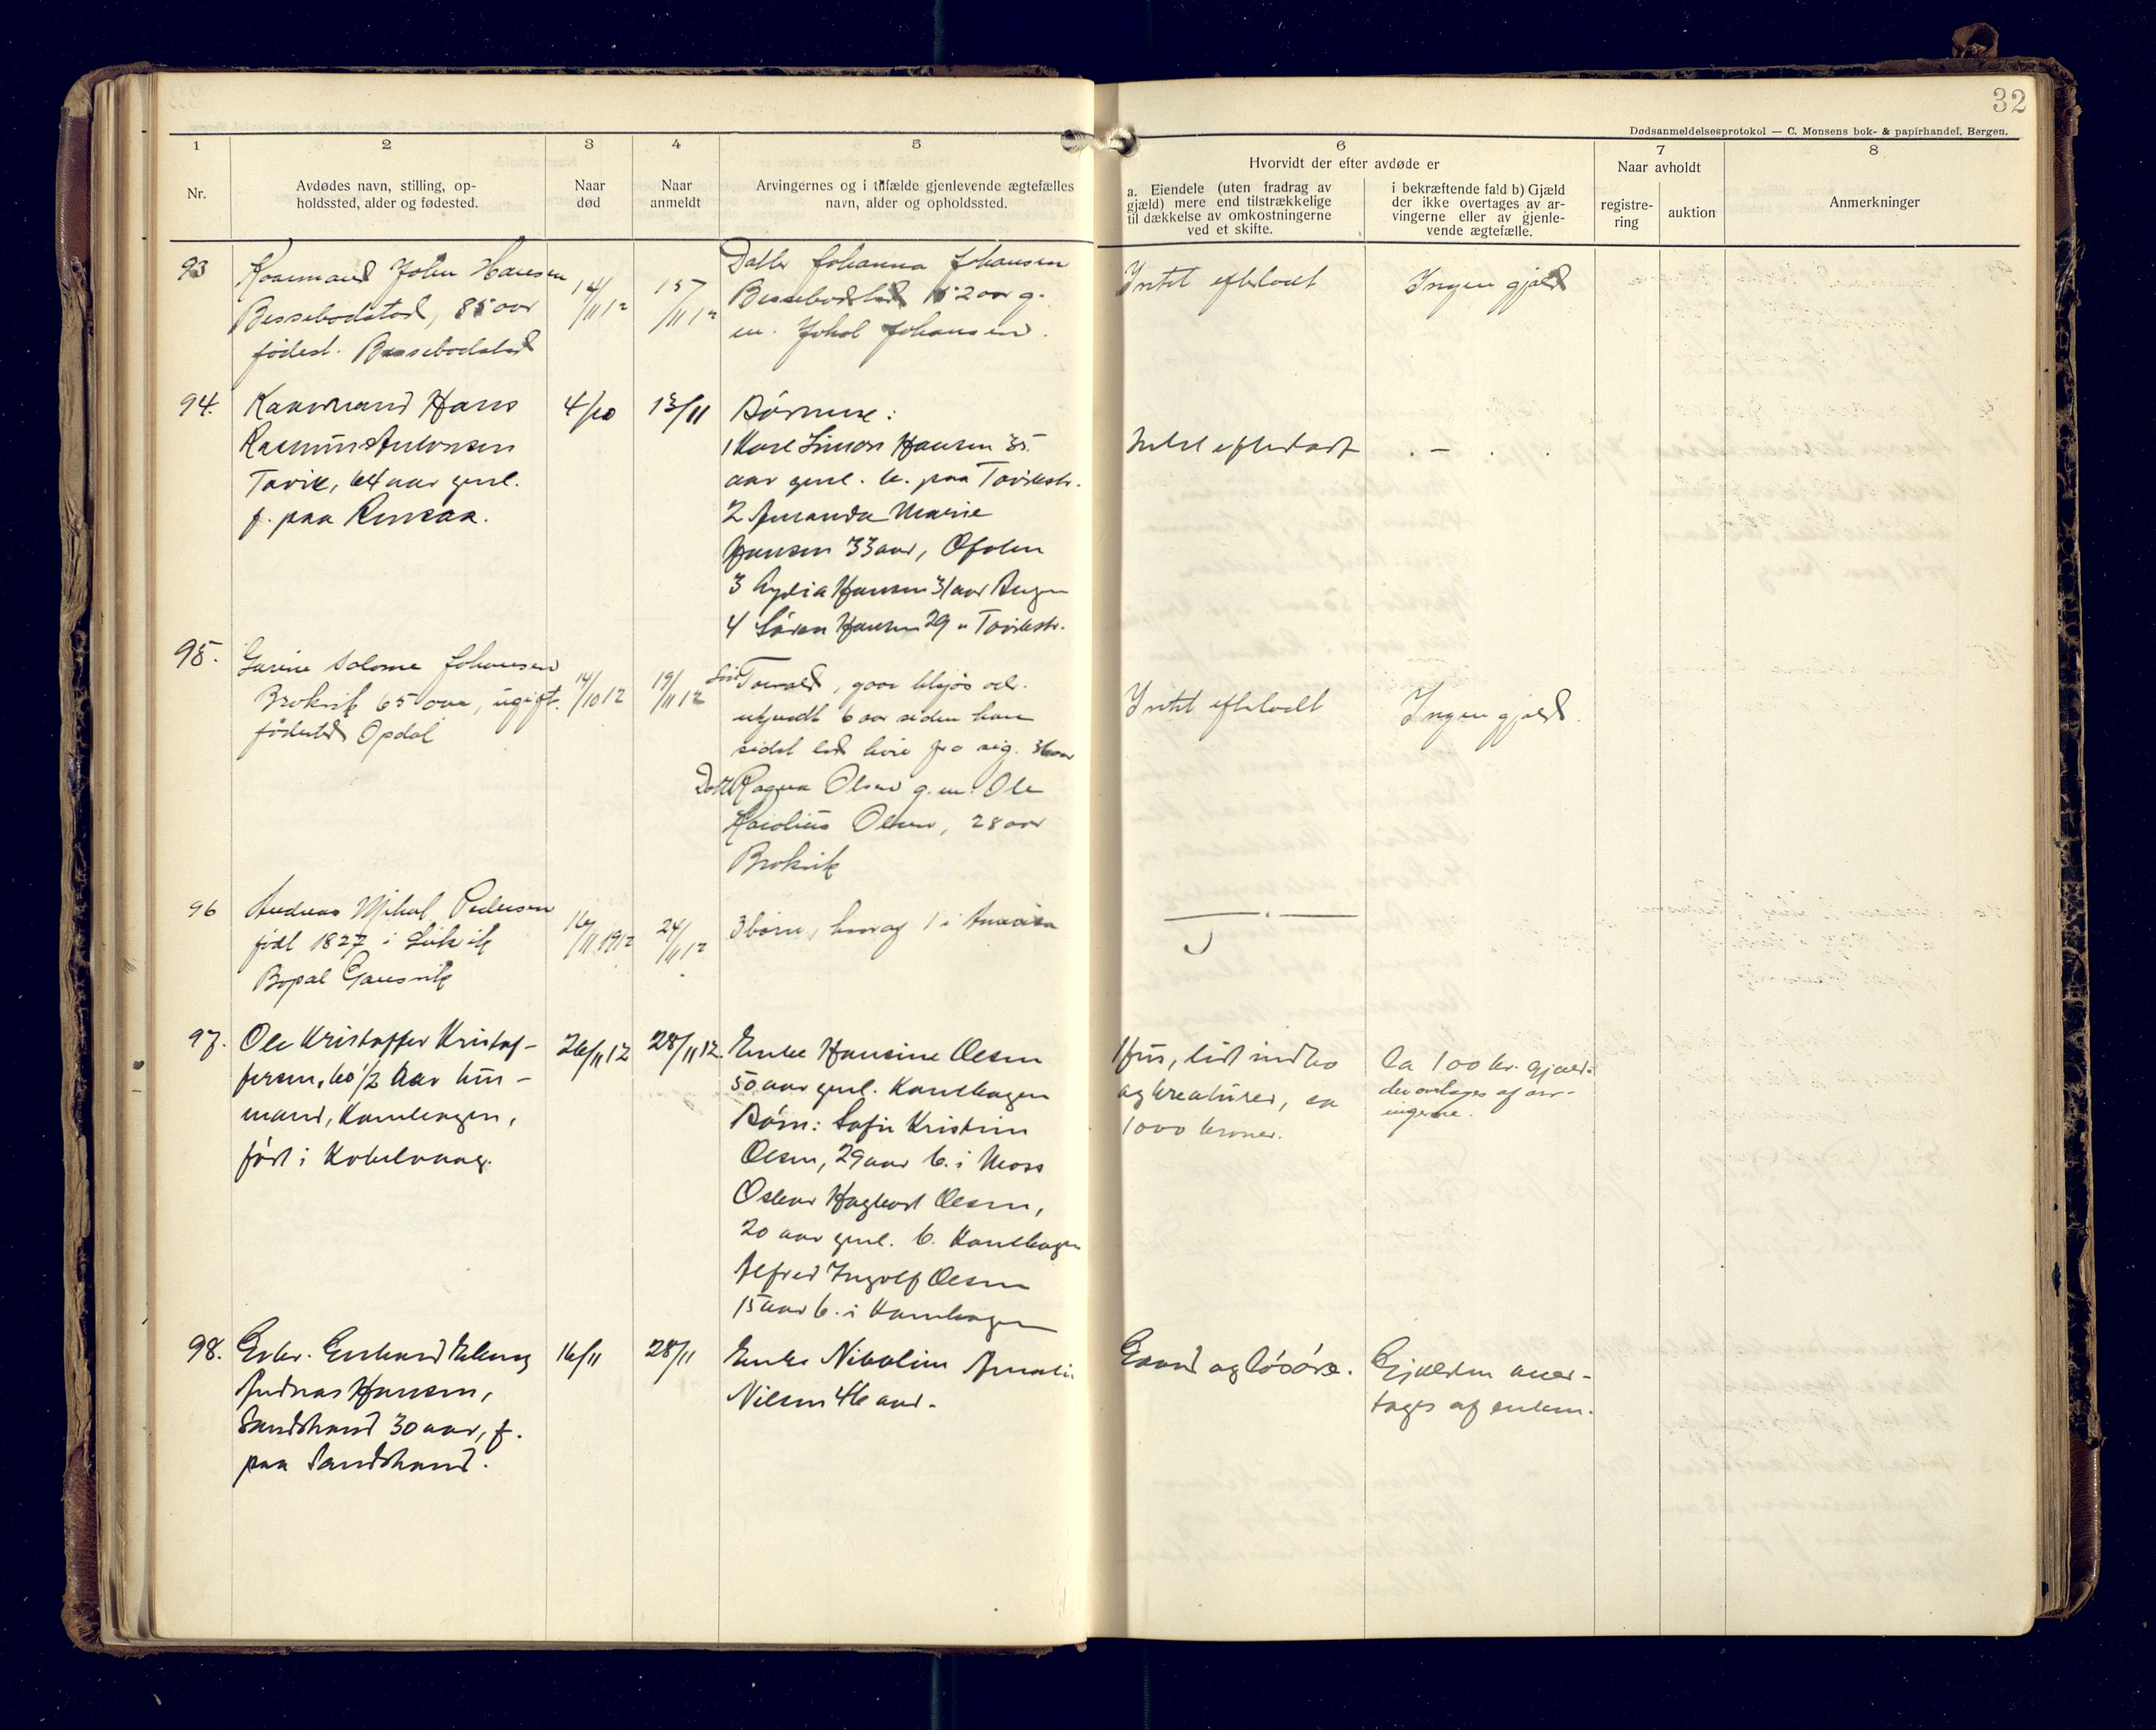 32
Dødsanmeldelsesprotokol — C. Monsens bok- & papirhandel, Bergen.
1
2
3
4
5
6
7
8
Nr.
Avdødes navn, stilling, op-
holdssted, alder og fødested.
Naar
død
Naar
anmeldt
Arvingernes og i tilfælde gjenlevende ægtefælles
navn, alder og opholdssted.
Hvorvidt der efter avdøde er
a. Eiendele (uten fradrag av
gjæld) mere end tilstrækkelige
til dækkelse av omkostningerne
ved et skifte.
i bekræftende fald b) Gjæld
der ikke overtages av ar-
vingerne eller av gjenle-
vende ægtefælle.
Naar avholdt
registre-
ring
auktion
Anmerkninger
93
Kaarmand Johan Hansen
Bessebodstad, 85 aar
fødest. Bessebodstad
14/11 12
15/11 12
Datter Johanna Johansen
Bessebodstad 52 aar g.
m. Johan Johansen.
Intet efterladt
Ingen gjæld
94.
Kaarmand Hans
Rasmus Antonsen
Tovik, 64 aar gml.
f. paa Rensaa.
4/10
13/11
Børnene:
1 Karl Simon Hansen 35
aar gml. b. paa Tovikstr.
2 Amanda Marie
Hansen 33 aar, Ofoten
3 Lydia Hansen 31 aar
4 Søren Hansen 29 " Tovikstr.
Intet efterladt
. — .
95.
Gurine Salome Johansen
Brokvik 65 aar, ugift.
fødested Opdal
14/10 12
19/11 12
Søn Torvald,
6 aar siden han
sidst lod høre fra sig. 36 aar
Datter Ragna Olsen g. m. Ole
Karolius Olsen, 28 aar
Brokvik
Intet efterladt
Ingen gjæld.
96
Andreas Mikal Pedersen
født 1827 i
Bopæl Gausvik
16/11 1912
24/11 12
3 børn, hvoraf 1 i Amerika
97.
Ole Kristoffer Kristof-
fersen, 60 1/2 aar hus-
mand, Kanebogen,
født i Kobelvaag.
26/11 12
28/11 12.
Enke Hansine Olsen
50 aar gml. Kanebogen
Børn: Sofie Kristine
Olsen, 29 aar b. i Moss
Oskar Hagbart Olsen,
20 aar gml. b. Kanebogen
Alfred Ingolf Olsen
15 aar b. i Kanebogen
1 hus, lidt indbo
og kreaturer, ca
1000 kroner.
Ca 100 kr. gjæld
der overtages af arv-
ingerne.
98.
Gbr. Gerhard Elling
Andreas Hansen,
Sandstrand 30 aar, f.
paa Sandstrand.
16/11
28/11
Enke Nikoline Amalie
Nilsen 46 aar.
Gaard og løsøre.
Gjælden over-
tages af enken.